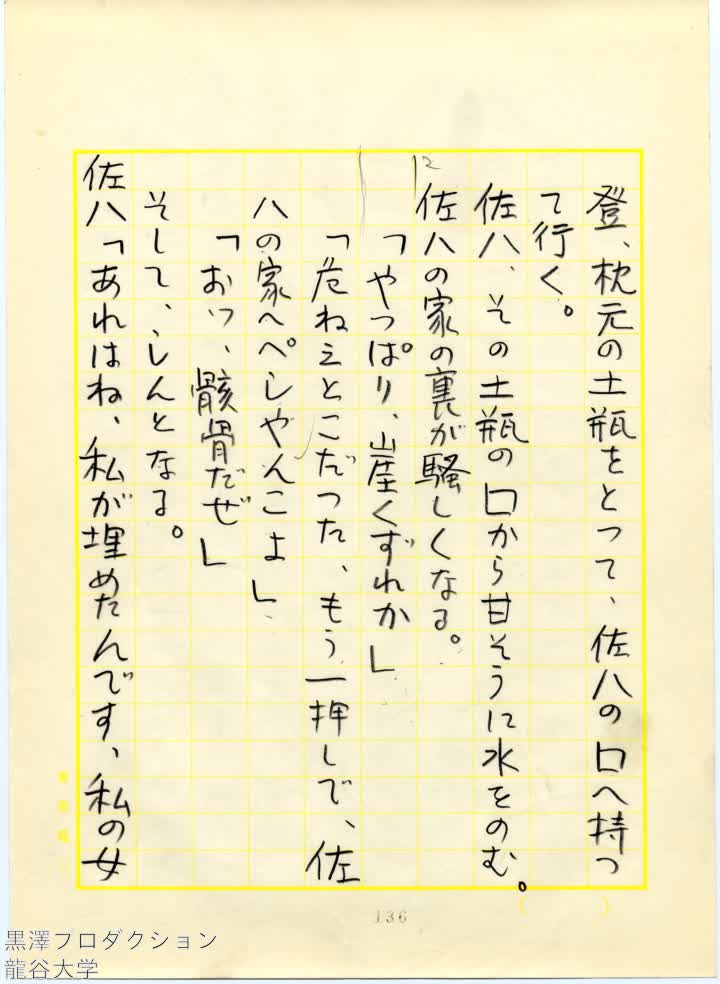 登、枕元の土瓶をとつて、佐八の口へ持つ
て行く。
佐八、その土瓶の口から甘そうに水をのむ。
佐八の家の裏が騒しくなる。
「やつぱり、崖くずれか」
「危ねえとこだつた、もう一押しで、佐
八の家へペしやんこよ」
「おッ、骸骨だぜ」
そして、しんとなる。
佐八「あれはね、私が埋めたんです、私の女
136
黒澤プロダクション
龍谷大学